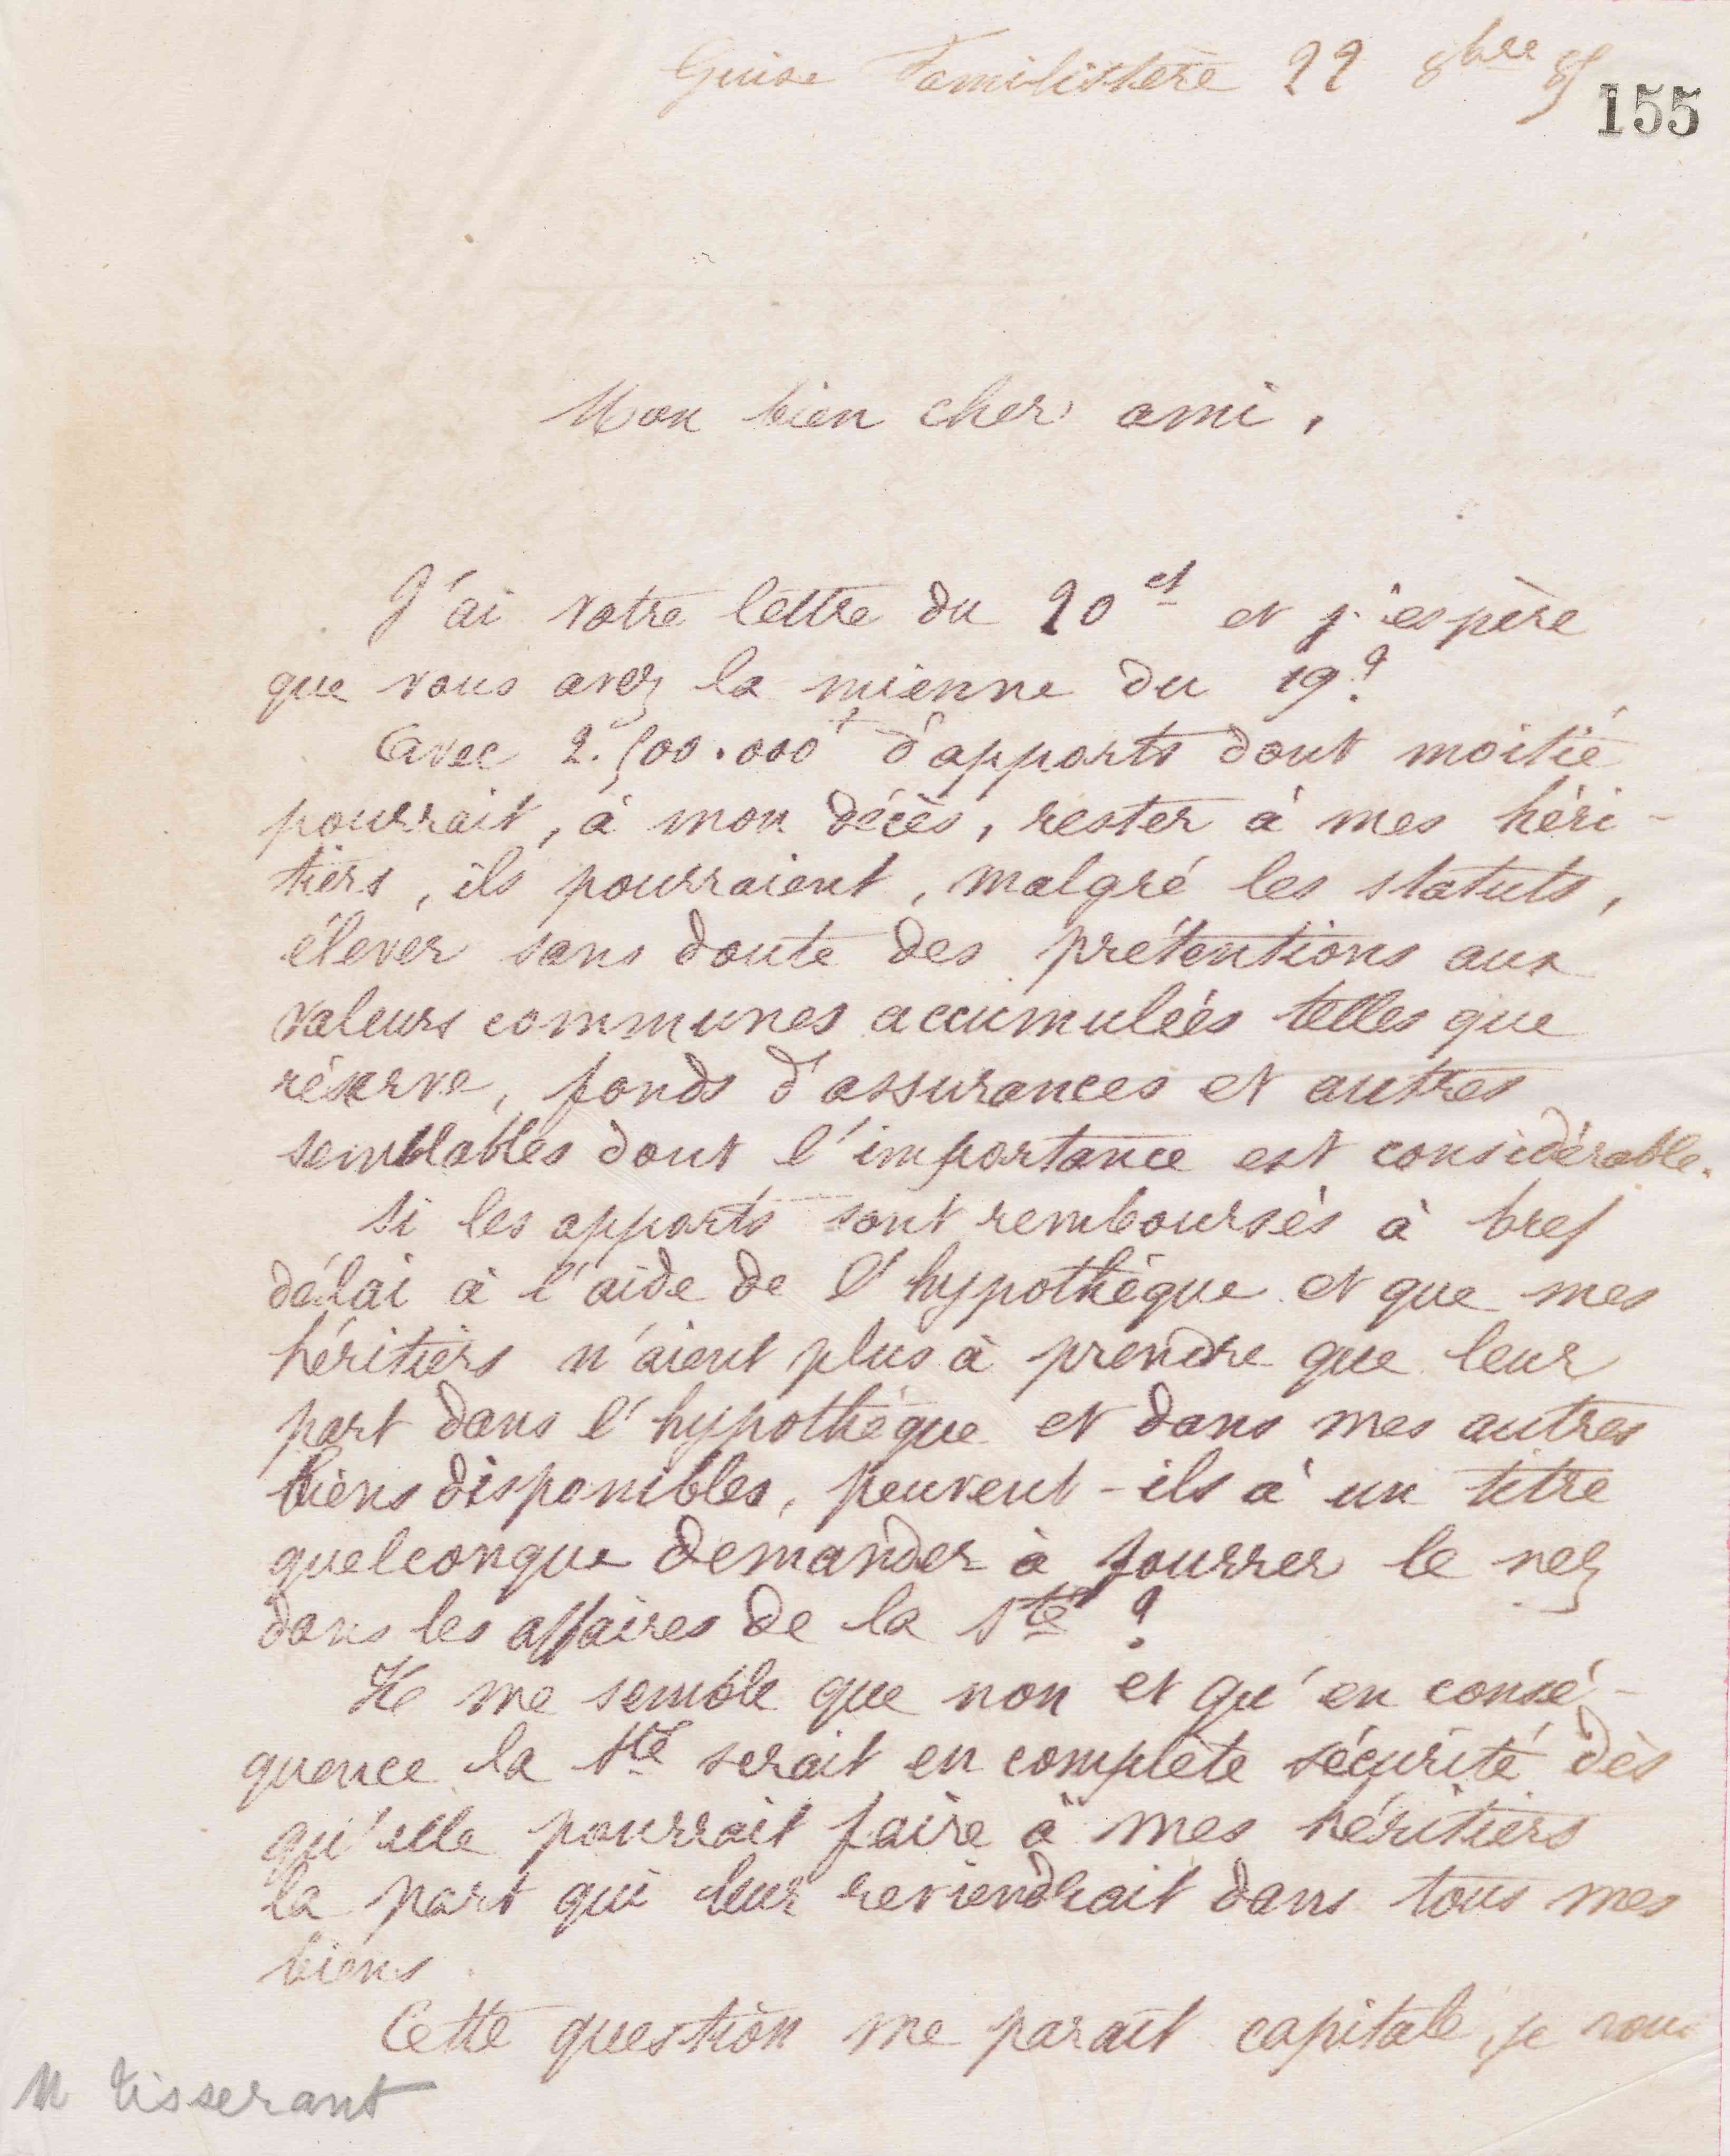 Guise Familistère 22 8bre 85
155
Mon bien cher ami,
J'ai votre lettre du 20 ct et j'espère
que vous avez la mienne du 19 ?
Avec 2.500.000f d'apports dont moitié
pourrait, à mon décès, rester à mes héri-
tiers, ils pourraient, malgré les statuts,
élever sans doute des prétentions aux
valeurs communes accumulées telles que
réserve, fonds d'assurances et autres
semblables dont l'importance est considérable.
Si les apports sont remboursés à bref
délai à l'aide de l'hypothèque et que mes
héritiers n'aient plus à prendre que leur
part dans l'hypothèque et dans mes autres
biens disponibles, peuvent-ils à un titre
quelconque demander à fourrer le nez
dans les affaires de la Sté ?
Il me semble que non et qu'en consé-
quence la Sté serait en complète sécurité dès
qu'elle pourrait faire à mes héritiers
la part qui leur reviendrait dans tous mes
biens.
Cette question me paraît capitale, je vous
M Tisserant